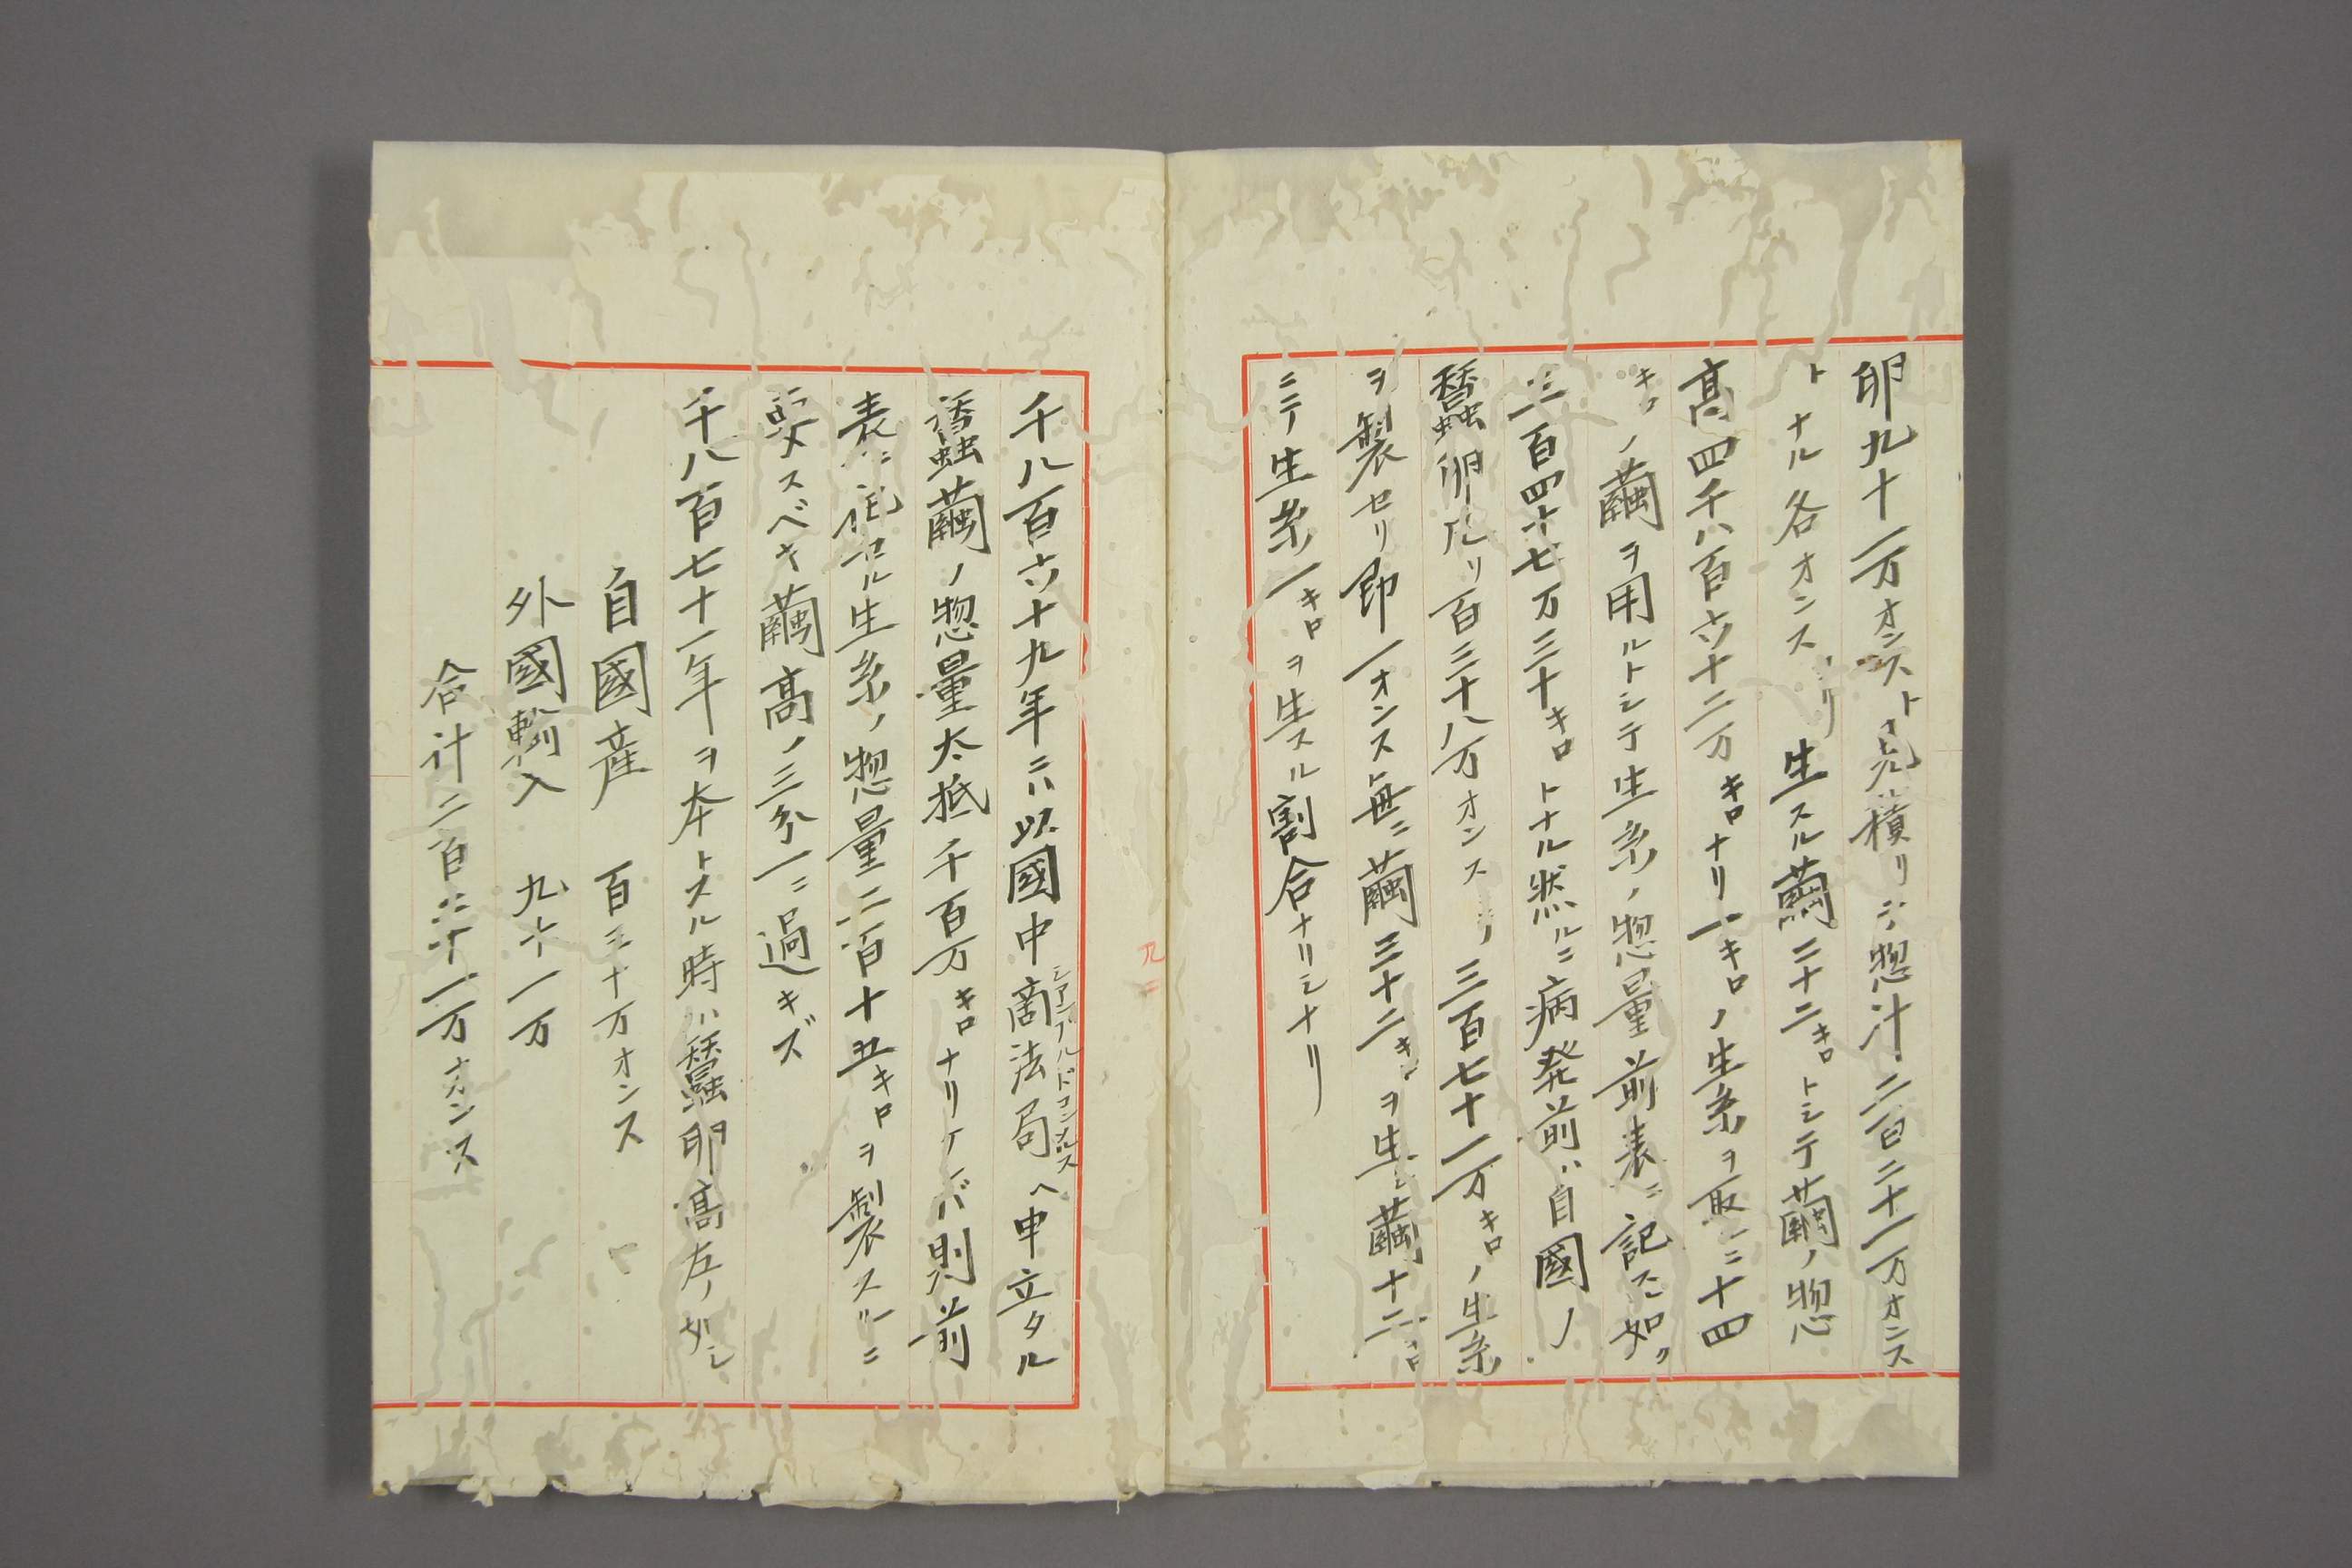 卵九十一万オンスト見積リ惣汁二百二十一万オンス
トナル各オンスヨリ生スル繭二十二キロトシテ繭ノ惣
髙四千八百六十二万キロナリ一キロノ生糸ヲ取ニ十四
キロノ繭ヲ用ルトシテ生糸ノ惣量前表ニ記ス如ク
三百四十七万三十キロトナル然ルニ病発前ハ自國ノ
蠶卵凡リ百三十八万オンスヨリ三百七十一万キロノ生糸
ヲ製セリ即一オンス毎ニ繭三十二キロヲ生シ繭十二キロ
ニテ生糸一キロヲ生スル割合ナリシナリ
千八百六十九年ニハ以國中商法局ヘ申立タル
シアンブルドコンメルス
蠶繭ノ惣量大抵千百万キロナリケレバ則前
表ニ記セル生糸ノ惣量二百十五キロヲ製スルニ
要スベキ繭髙ノ三分一ニ過キズ
千八百七十一年ヲ本トスル時ハ蠶卵髙左ノ如シ
自國産 百三十万オンス
外國輸入 九十一万
合计二百二十一万オンス